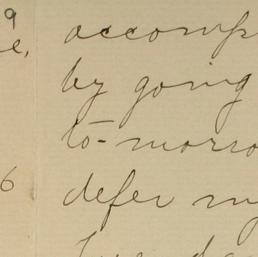 9
e,
accomp
by going
to-morro
6
defer my